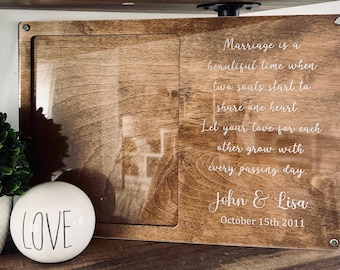 Marriage is a
beautiful time when
two souls start to
share one heart.
Let your love for each
other grow with
every passing day.
John & Lisa
October 15th 2011
LOVE